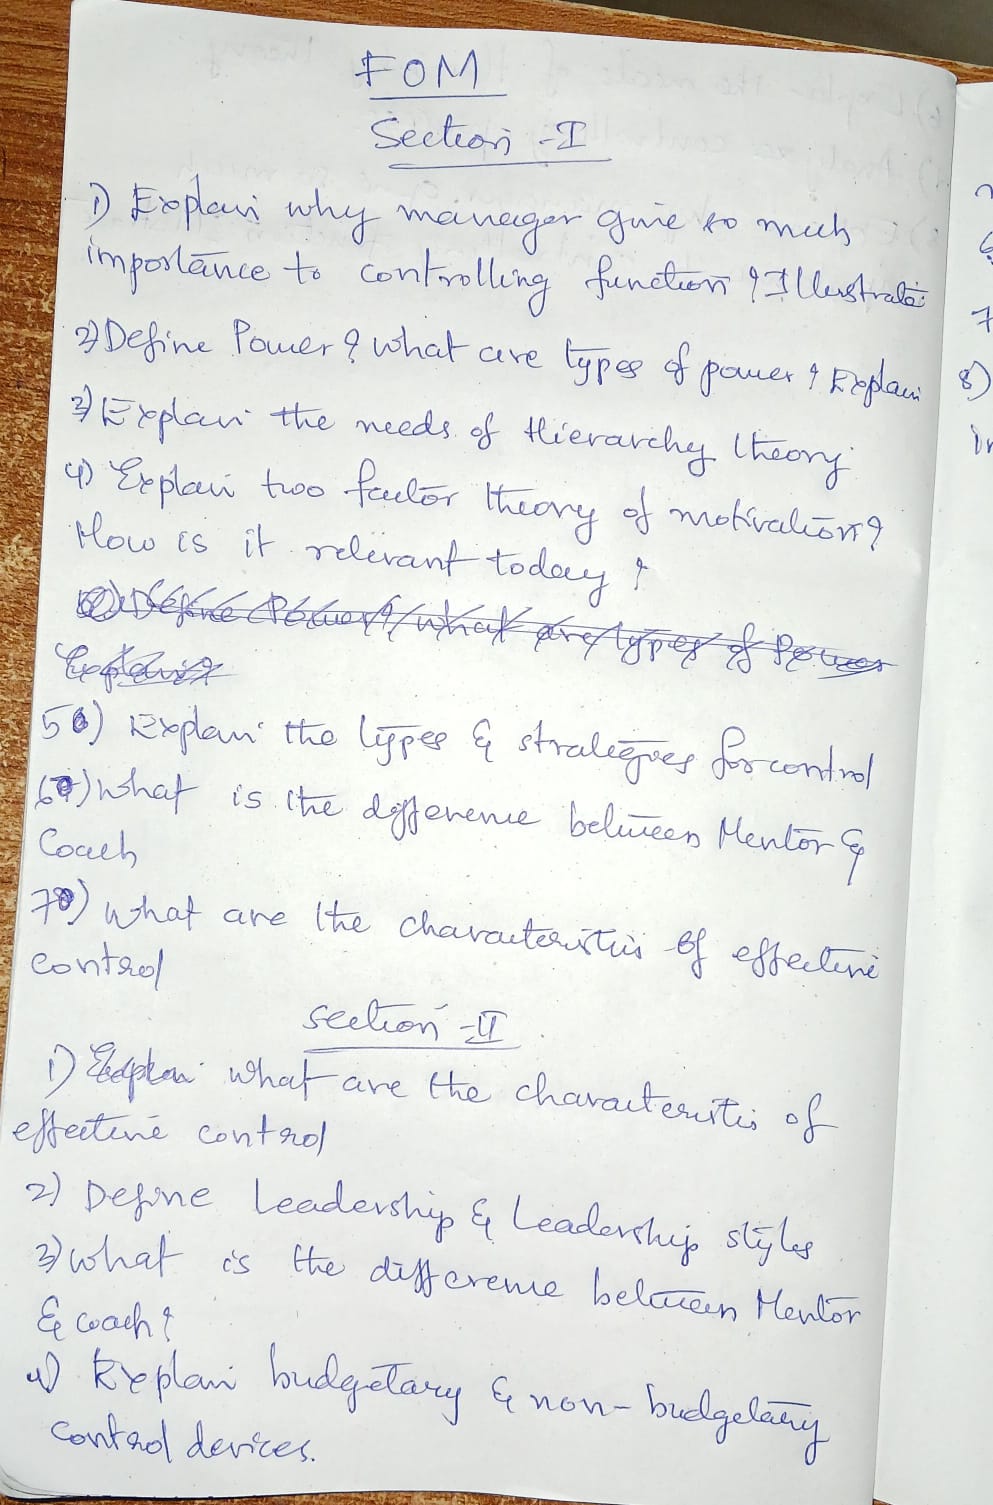 FOM
Section - I
1) Explain why manager give so much
importance to controlling function? Illustrate
2) Define Power? what are types of power? Explain
3) Explain the needs of Hierarchy theory
4) Explain two factor theory of motivation?
How is it relevant today?
5) Explain the types & strategies for control
6) What is the difference between Mentor &
Coach
7) What are the characteristics of effective
control
Section - II
1) Explain what are the characteristics of
effective control
2) Define Leadership & Leadership styles
3) What is the difference between Mentor
& coach?
4) Explain budgetary & non-budgetary
control devices.
8)